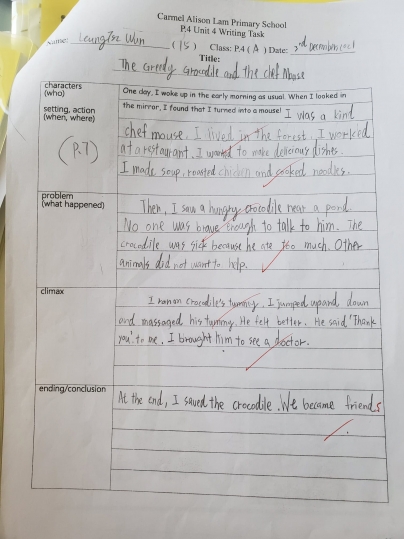 Carmel Alison Lam Primary School
P.4 Unit 4 Writing Task
Name: Leung Tsz Wun (15) Class: P.4 (A) Date: 2nd December
Title:
The Greedy Crocodile and the Chef Mouse
characters
(who)
setting, action
(when, where)
(P.7)
One day, I woke up in the early morning as usual. When I looked in
the mirror, I found that I turned into a mouse! I was a kind
chef mouse. I lived in the forest. I worked
at a restaurant. I wanted to make delicious dishes.
I made soup, roasted chicken and cooked noodles.
problem
(what happened)
Then, I saw a hungry crocodile near a pond.
No one was brave enough to talk to him. The
crocodile was sick because he ate too much. Other
animals did not want to help.
climax
I ran on Crocodile's tummy. I jumped up and down
and massaged his tummy. He felt better. He said 'Thank
you' to me. I brought him to see a doctor.
ending/conclusion
At the end, I saved the crocodile. We became friends
.